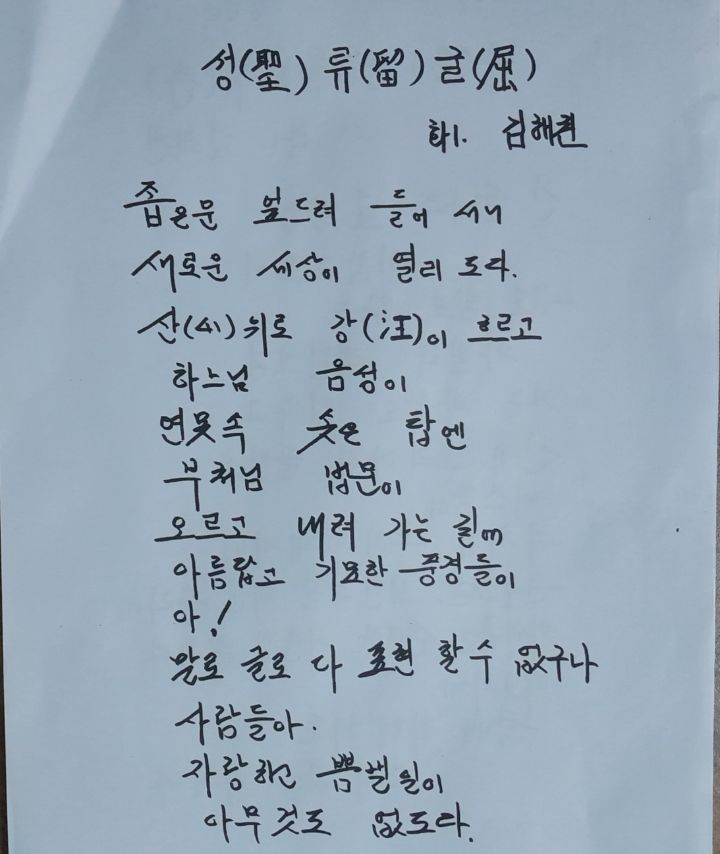 성(聖) 류(留) 굴(屈)
김해진
좁은문 엎드려 들어 서니
새로운 세상이 열리 도다.
산(山)위로 강(江)이 흐르고
하느님 음성이
연못속 솟은 탑엔
부처님 법문이
오르고 내려 가는 길m
아름답고 기묘한 풍경들이
아!
말로 글로 다 표현 할 수 없구나
사람들아.
자랑하고 뽐낼일이
아무것도 없도다.